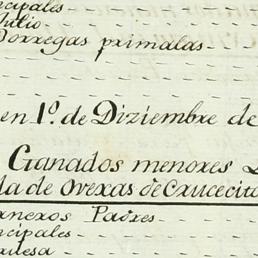 ncipales
Julio
Borregas primalas
en 1º de Diziembre de
Ganados menores
da de Ovexas de Crucecita
Anexos Padres
ncipales